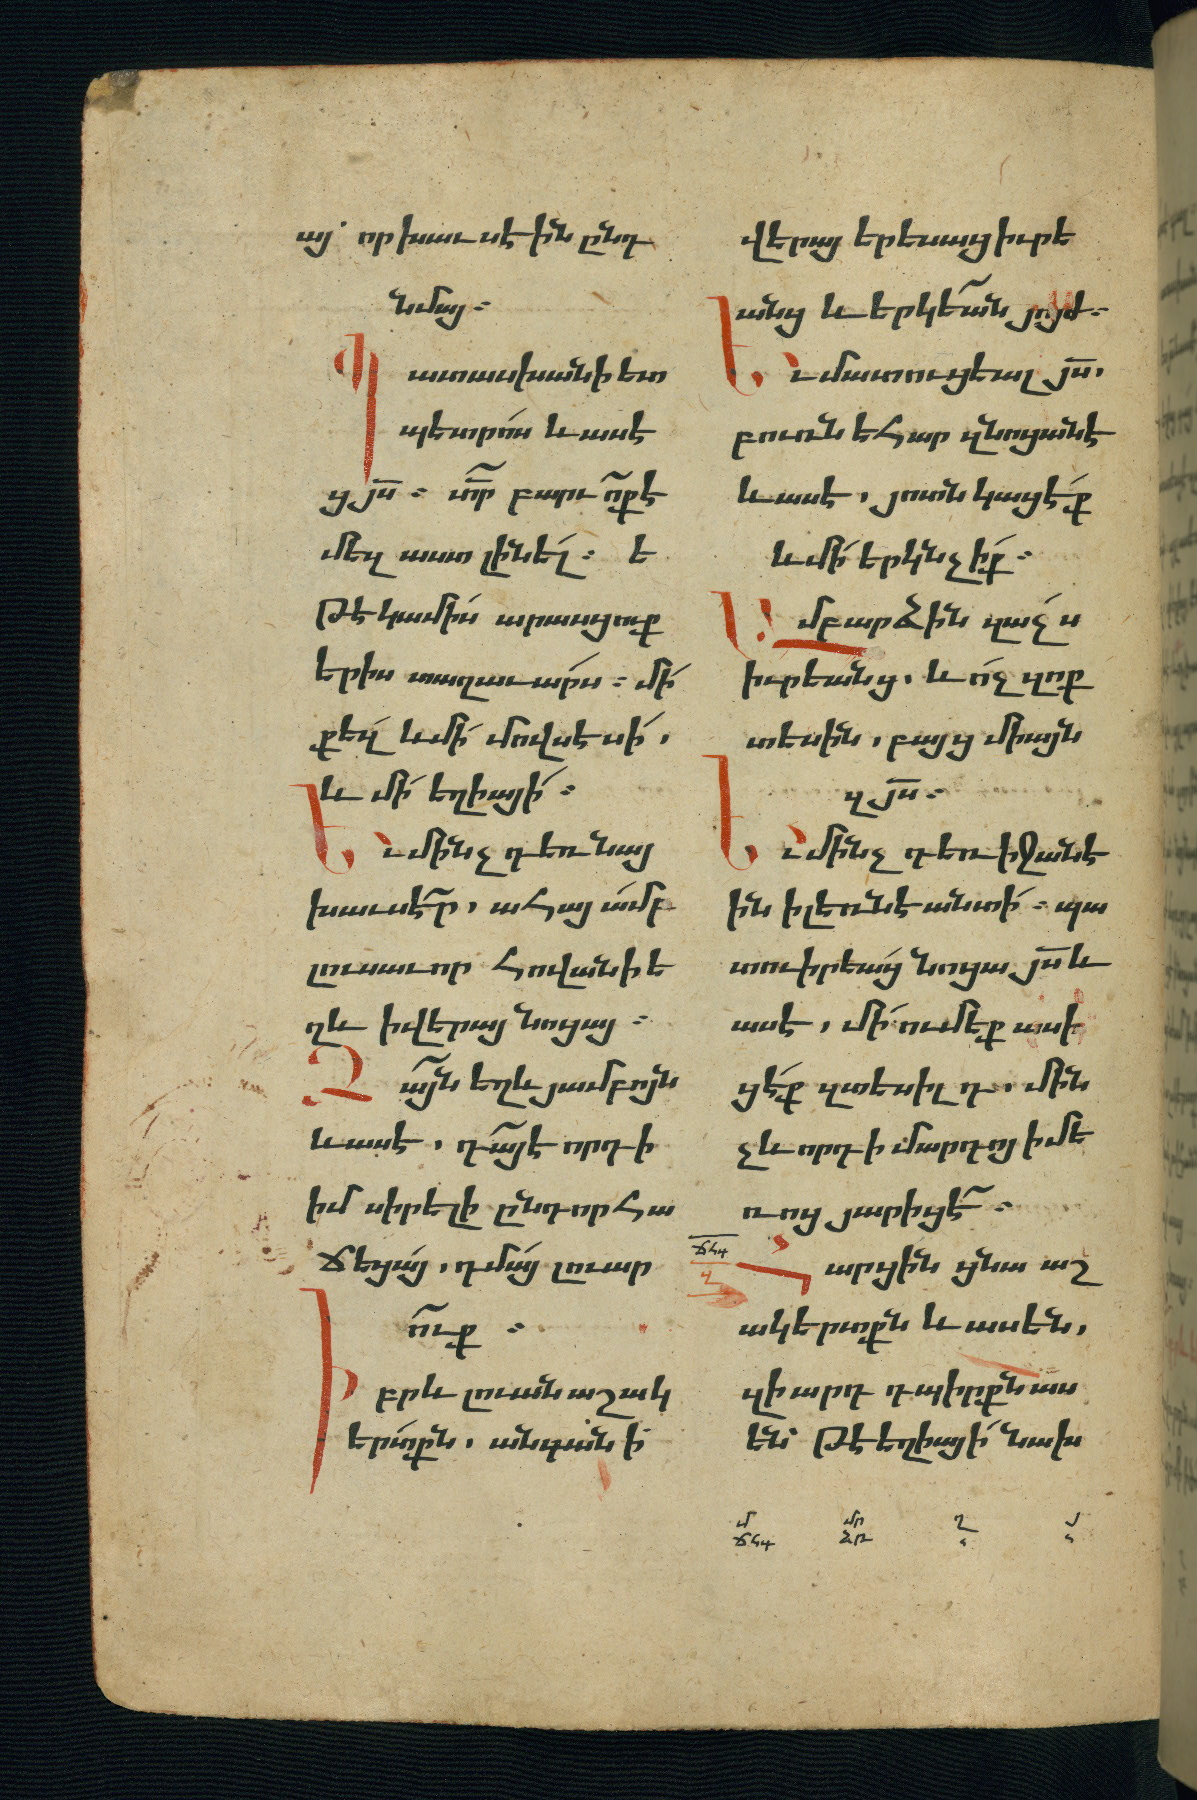 այ՝ որ խաւսէին ընդ
նմայ։
Պատասխանի ետ
պետրո՛ս և ասէ
ց յս։ տր բարւոքէ
մեզ աստ լինել։ ե
թէ կամիս արասցուք
երիս տաղաւարս։ մի՛
քեզ և մի՛ մովսէսի՛,
և մի՛ եղիայի՛։
Եւ մինչ դեռ նայ
խաւսէր, ահայ ամբ
լուսաւոր հովանի ե
ղև ի վերայ նոցայ։
Ձայն եղև յամբոյն
և ասէ, դայէ որդի
իմ սիրելի ընդ որ հա
ճեցայ, դմայ լուար
ուք։
Իբրև լուան աշակ
երտքն, անգան ի
վերայ երեսաց իւրե
անց և երկեան յոյժ։
Եւ մատուցեալ յս,
բուռն եհար զնոցանէ
և ասէ, յոտն կացէ՛ք
և մի՛ երկնչիք։
Ամբարձին զաչս
իւրեանց, և ո՛չ զոք
տեսին, բայց միայն
զյս։
Եւ մինչ դեռ իջանէ
ին ի լեռնէ անտի՛։ պա
տուիրեաց նոցա յս և
ասէ, մի՛ ումեք ասի
ցէք զտեսիլդ, մին
չև որդի մարդոյ ի մե
ռոյ յարիցէ։
ճհդ
Հարցին ցնա աշ
ակերտքն և ասեն,
զիարդ դպիրքն աս
են՝ թէ եղիայի՛ նախ